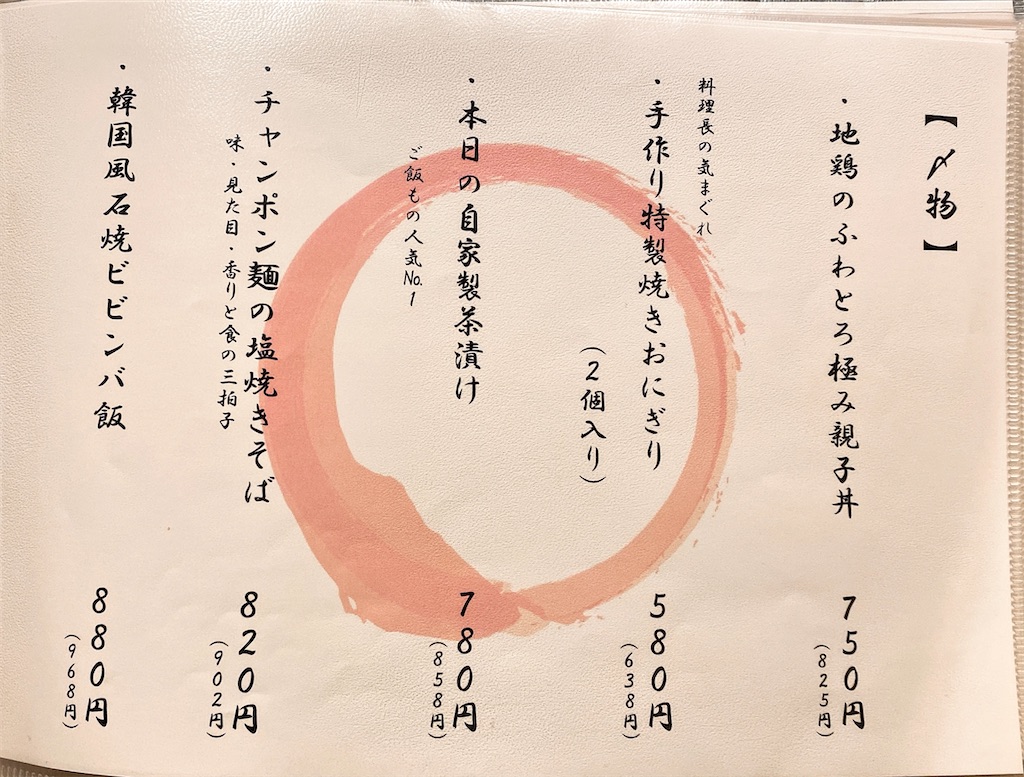 【〆物】
・地鶏のふわとろ極み親子丼
750円
(825円)
料理長の気まぐれ
・手作り特製焼きおにぎり
(2個入り)
580円
(638円)
・本日の自家製茶漬け
ご飯もの人気No.1
780円
(858円)
・チャンポン麺の塩焼きそば
味・見た目・香りと食の三拍子
820円
(902円)
・韓国風石焼ビビンバ飯
880円
(968円)